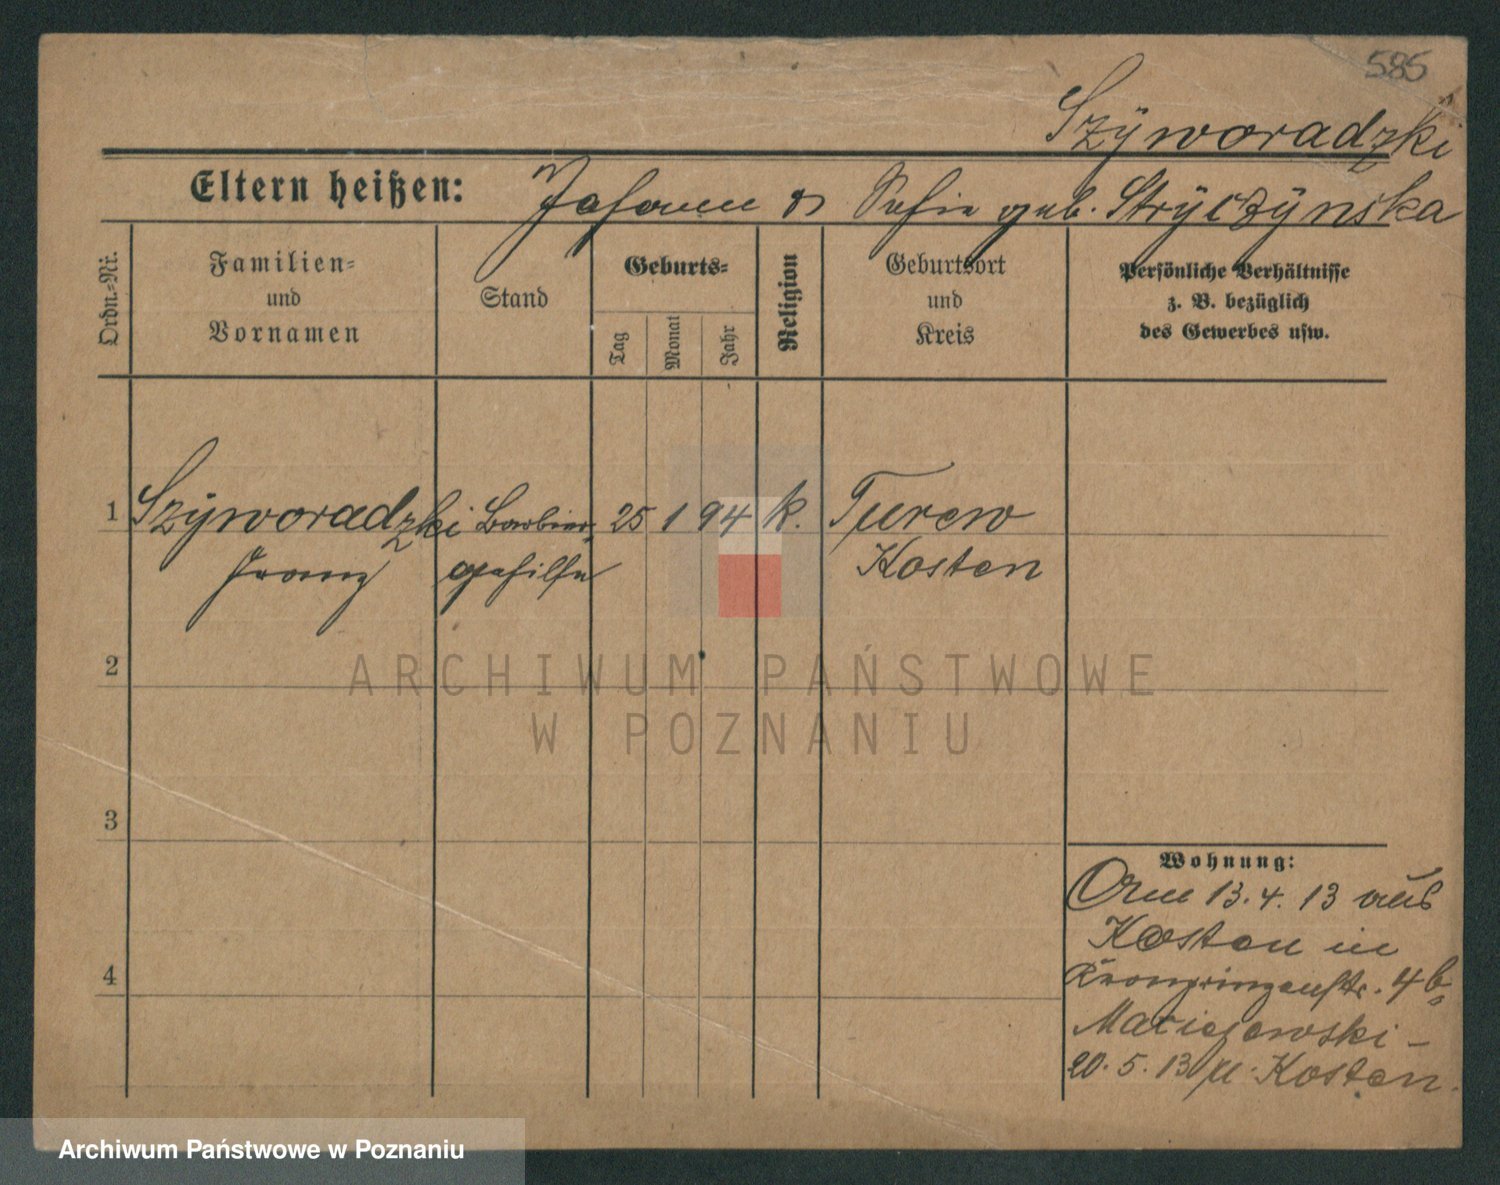 585
Szÿworadzki
Eltern heißen: Johann & Sofie geb. Strÿczÿnska
Ordn.-Nr.
Familien-
und
Vornamen
Stand
Geburts-
Tag
Monat
Jahr
Religion
Geburtsort
und
Kreis
Persönliche Verhältnisse
z. B. bezüglich
des Gewerbes usw.
1 Szÿworadzki Barbier- 25 1 94 k. Turew
Franz gehilfe Kosten
2
ARCHIWUM PAŃSTWOWE
W POZNANIU
3
Wohnung:
Am 13.4.13 aus
Kosten in
4
Kronprinzenstr. 4b
Maciejewski -
20.5.13 Kosten.
Archiwum Państwowe w Poznaniu